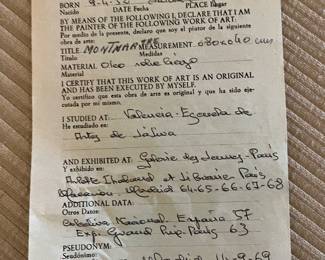 BORN 9-4-32
DATE Fecha PLACE Lugar
BY MEANS OF THE FOLLOWING I DECLARE THAT I AM
THE PAINTER OF THE FOLLOWING WORK OF ART:
Por medio de la presente, declaro que soy el pintor de la siguiente
obra de arte:
TITLE MONTMARTRE MEASUREMENT 080x040 cms
Título Medidas
MATERIAL Oleo sobre lienzo
Material
I CERTIFY THAT THIS WORK OF ART IS AN ORIGINAL
AND HAS BEEN EXECUTED BY MYSELF.
Yo certifico que esta obra de arte es original y que ha sido eje-
cutada por mi mismo.
I STUDIED AT: Valencia - Escuela de
He estudiado en:
Artes de Játiva
AND EXHIBITED AT: Galerie des Jeunes - París
Y exhibido en:
et Librairie París
Madrid 64-65-66-67-68
ADDITIONAL DATA:
Otros Datos:
Colectiva Nacional. España 57
Exp. Grand París 63
PSEUDONYM:
Seudónimo: